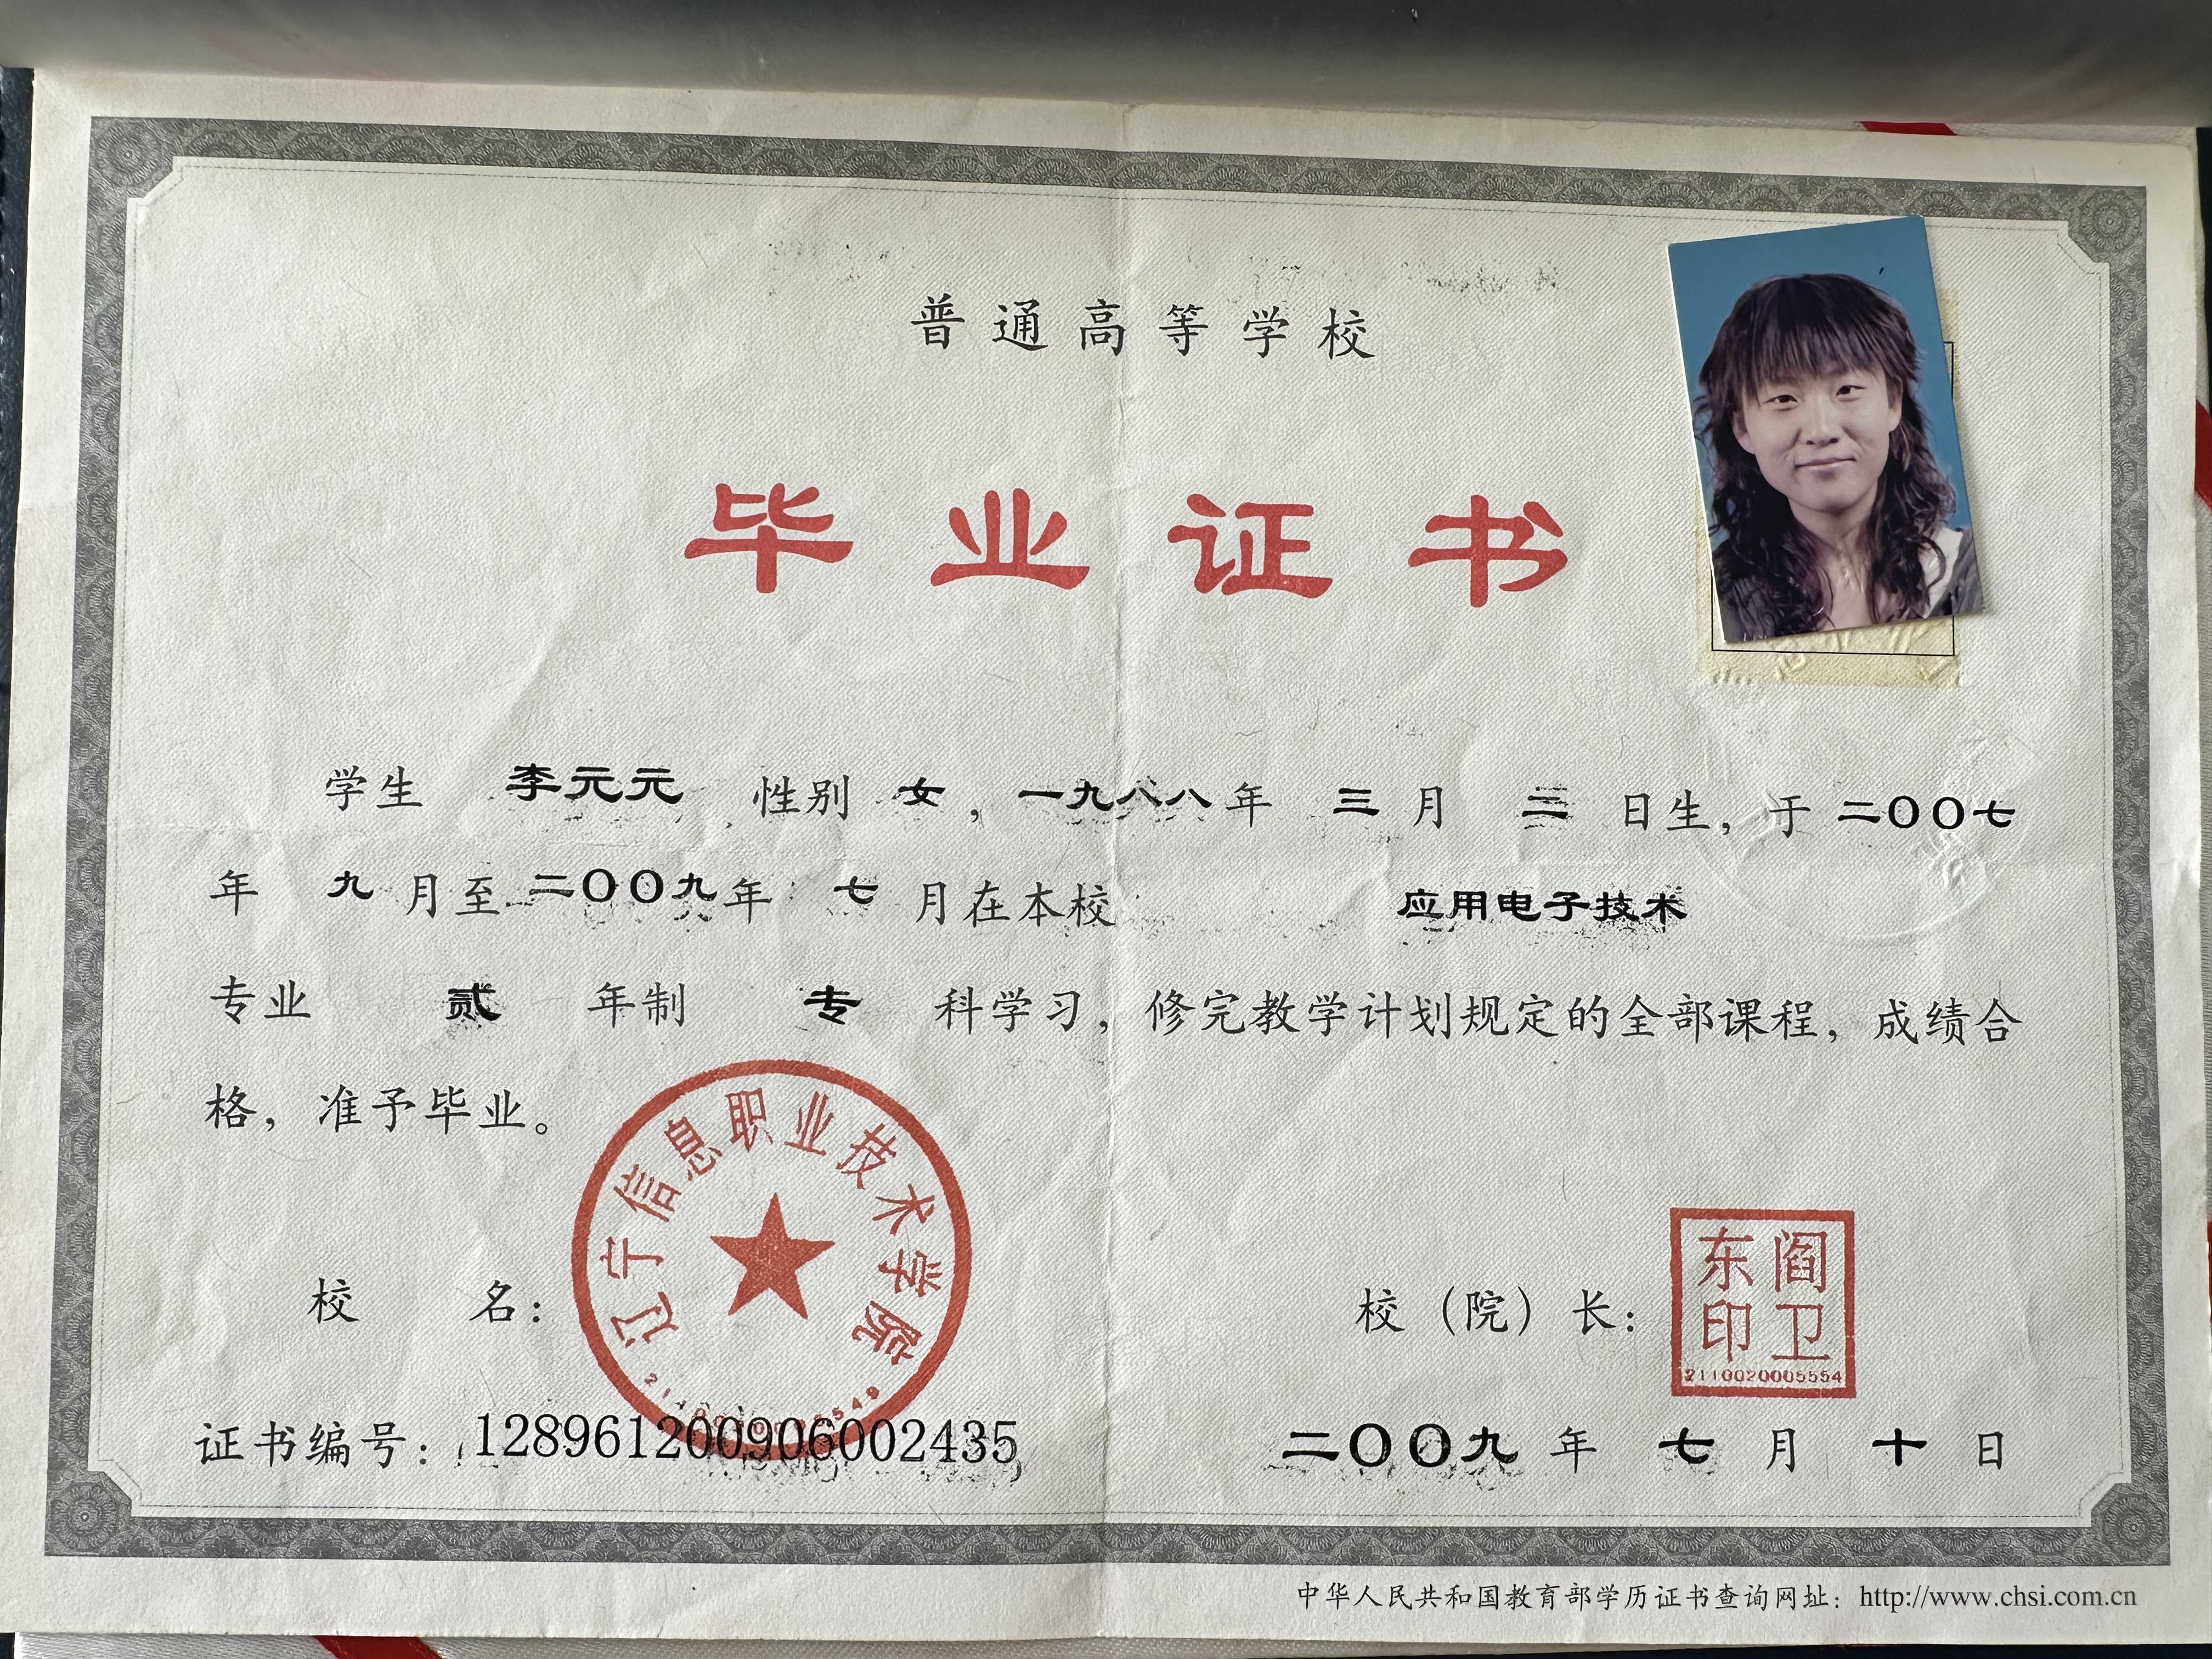 普通高等学校
毕业证书
学生 李元元 性别 女，一九八八年 三月 三 日生，于 二〇〇七
年 九 月至 二〇〇九年 七 月在本校 应用电子技术
专业 贰 年制 专 科学习，修完教学计划规定的全部课程，成绩合
格，准予毕业。
辽宁信息职业技术学院
校 名：
校（院）长：
东阎
印卫
2110020005554
证书编号：128961200906002435
二〇〇九 年 七 月 十 日
中华人民共和国教育部学历证书查询网址：http://www.chsi.com.cn